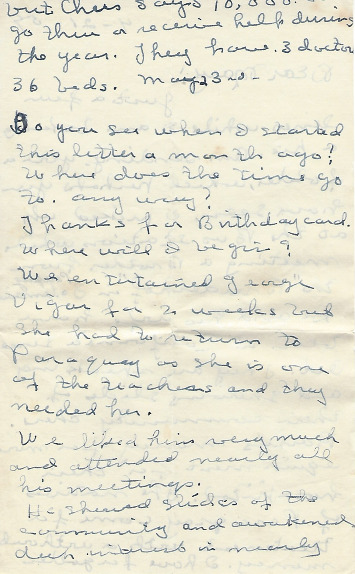 but Chris says 10,000.
go thru or receive help during
the year. They have 3 doctor
36 beds. May 23rd -
Do you see when I started
this letter a month ago?
Where does the time go
to. any way?
Thanks for Birthday card.
Where will I begin?
We entertained George
Vigar for 2 weeks but
she had to return to
Paraquay as she is one
of the teachers and they
needed her.
We liked him very much
and attended nearly all
his meetings.
He showed slides of the
community and awakened
deep interest in nearly